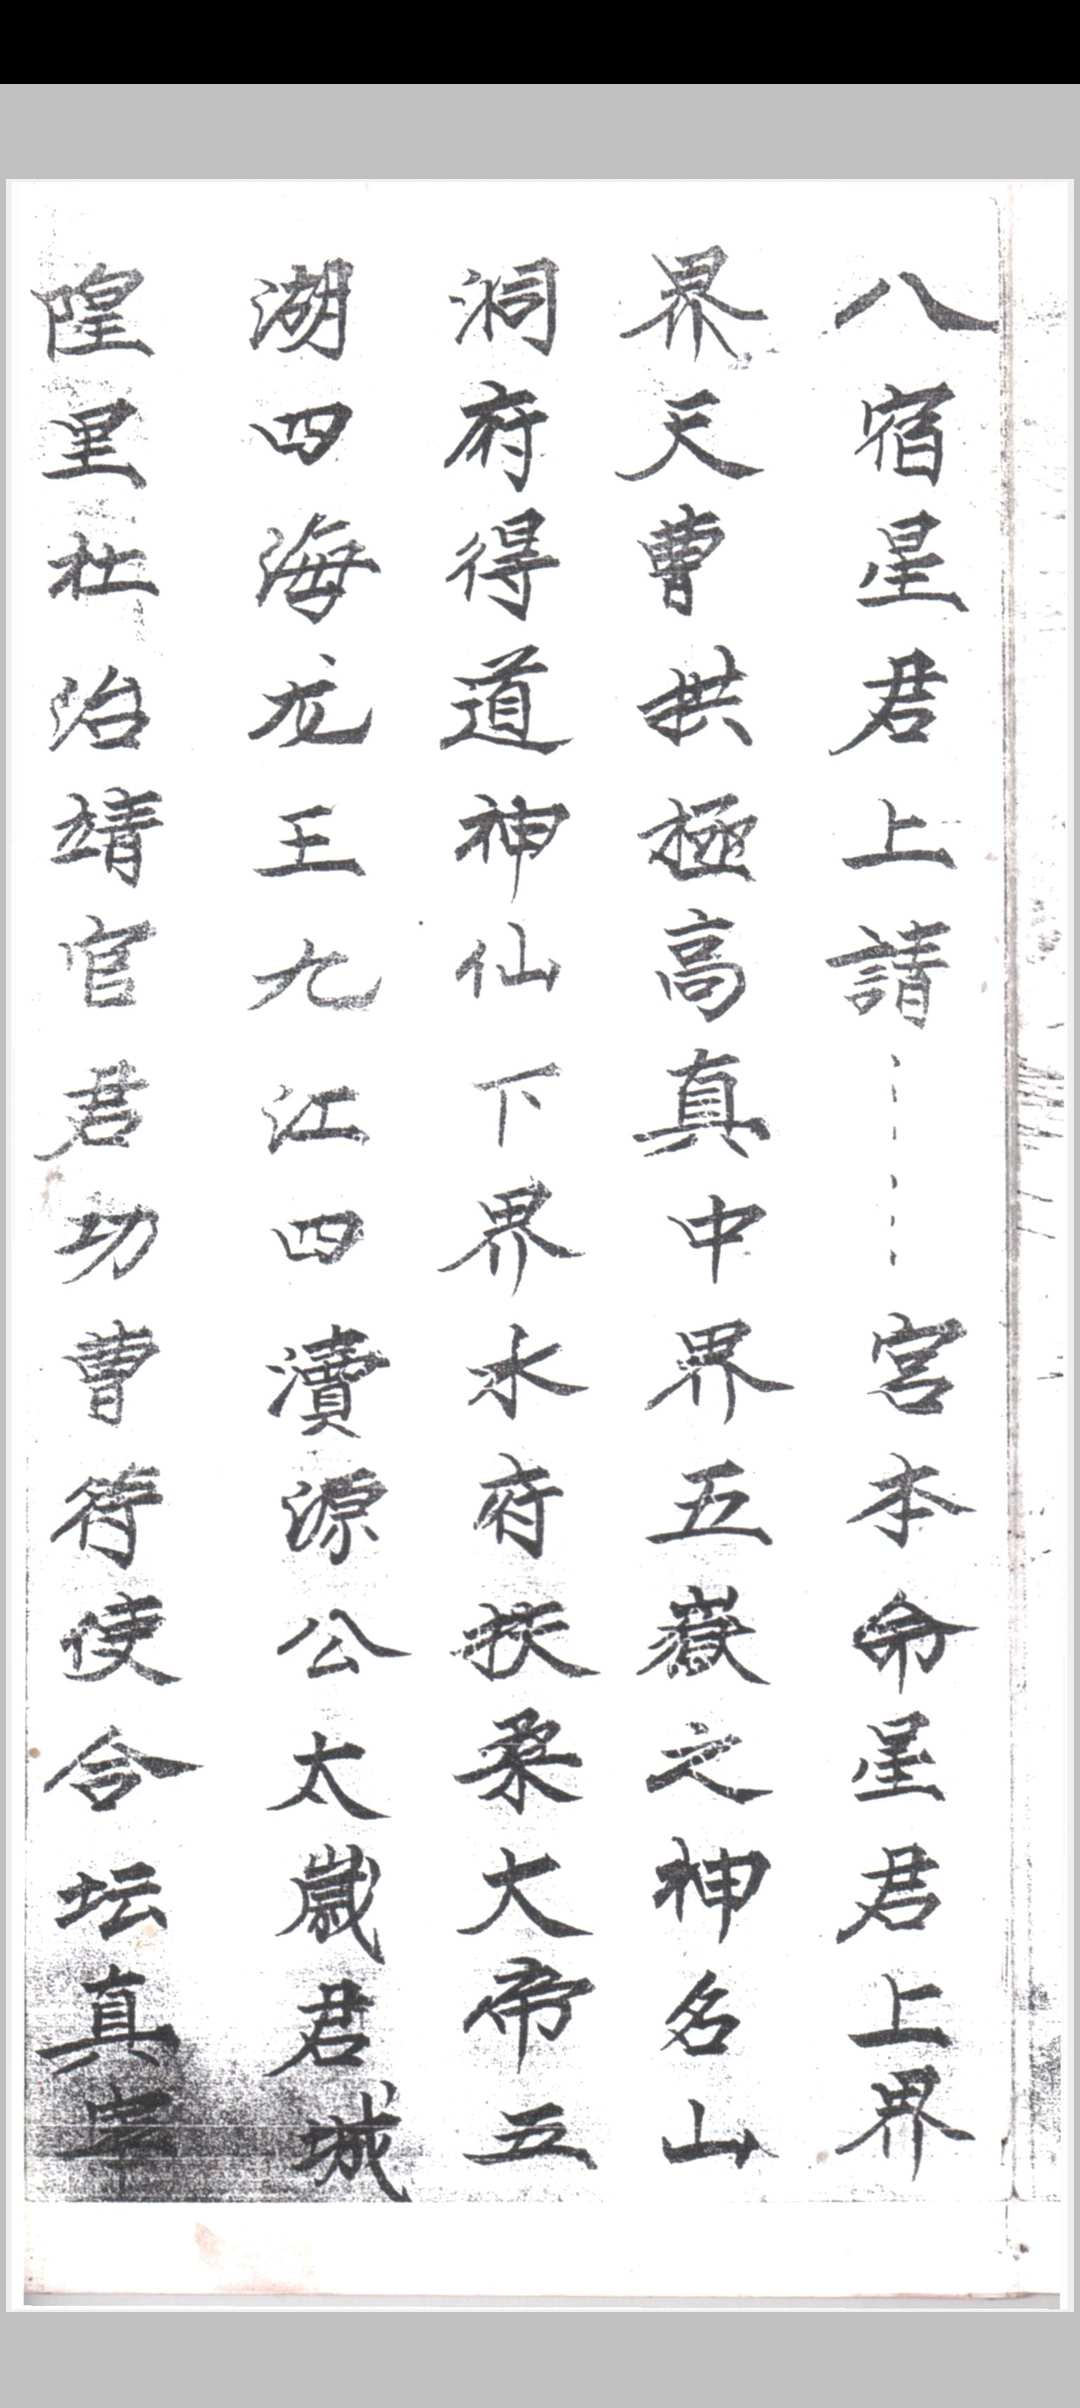 八宿星君上請……宮本命星君上界
界天曹拱極高真中界五嶽之神名山
洞府得道神仙下界水府扶桒大帝五
湖四海龙王九江四瀆源公太歲君城
隍里社治靖官君功曹符使合坛真宰